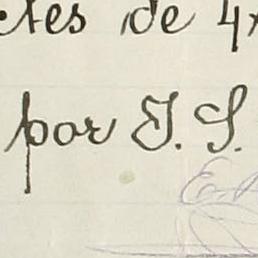 tes de 4
por J. S.